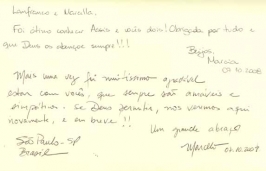 Lanfranco e Marcella.
Foi ótimo conhecer Assis e vocês dois! Obrigada por tudo e
que Deus os abençoe sempre!!!
Beijos,
Marcia
07.10.2008
Mais uma vez foi muitíssimo agradável
estar com vocês, que sempre são amáveis e
simpáticos. Se Deus permitir, nos veremos aqui
novamente, e em breve!!
Um grande abraço
São Paulo - SP
Brasil
02.10.2009